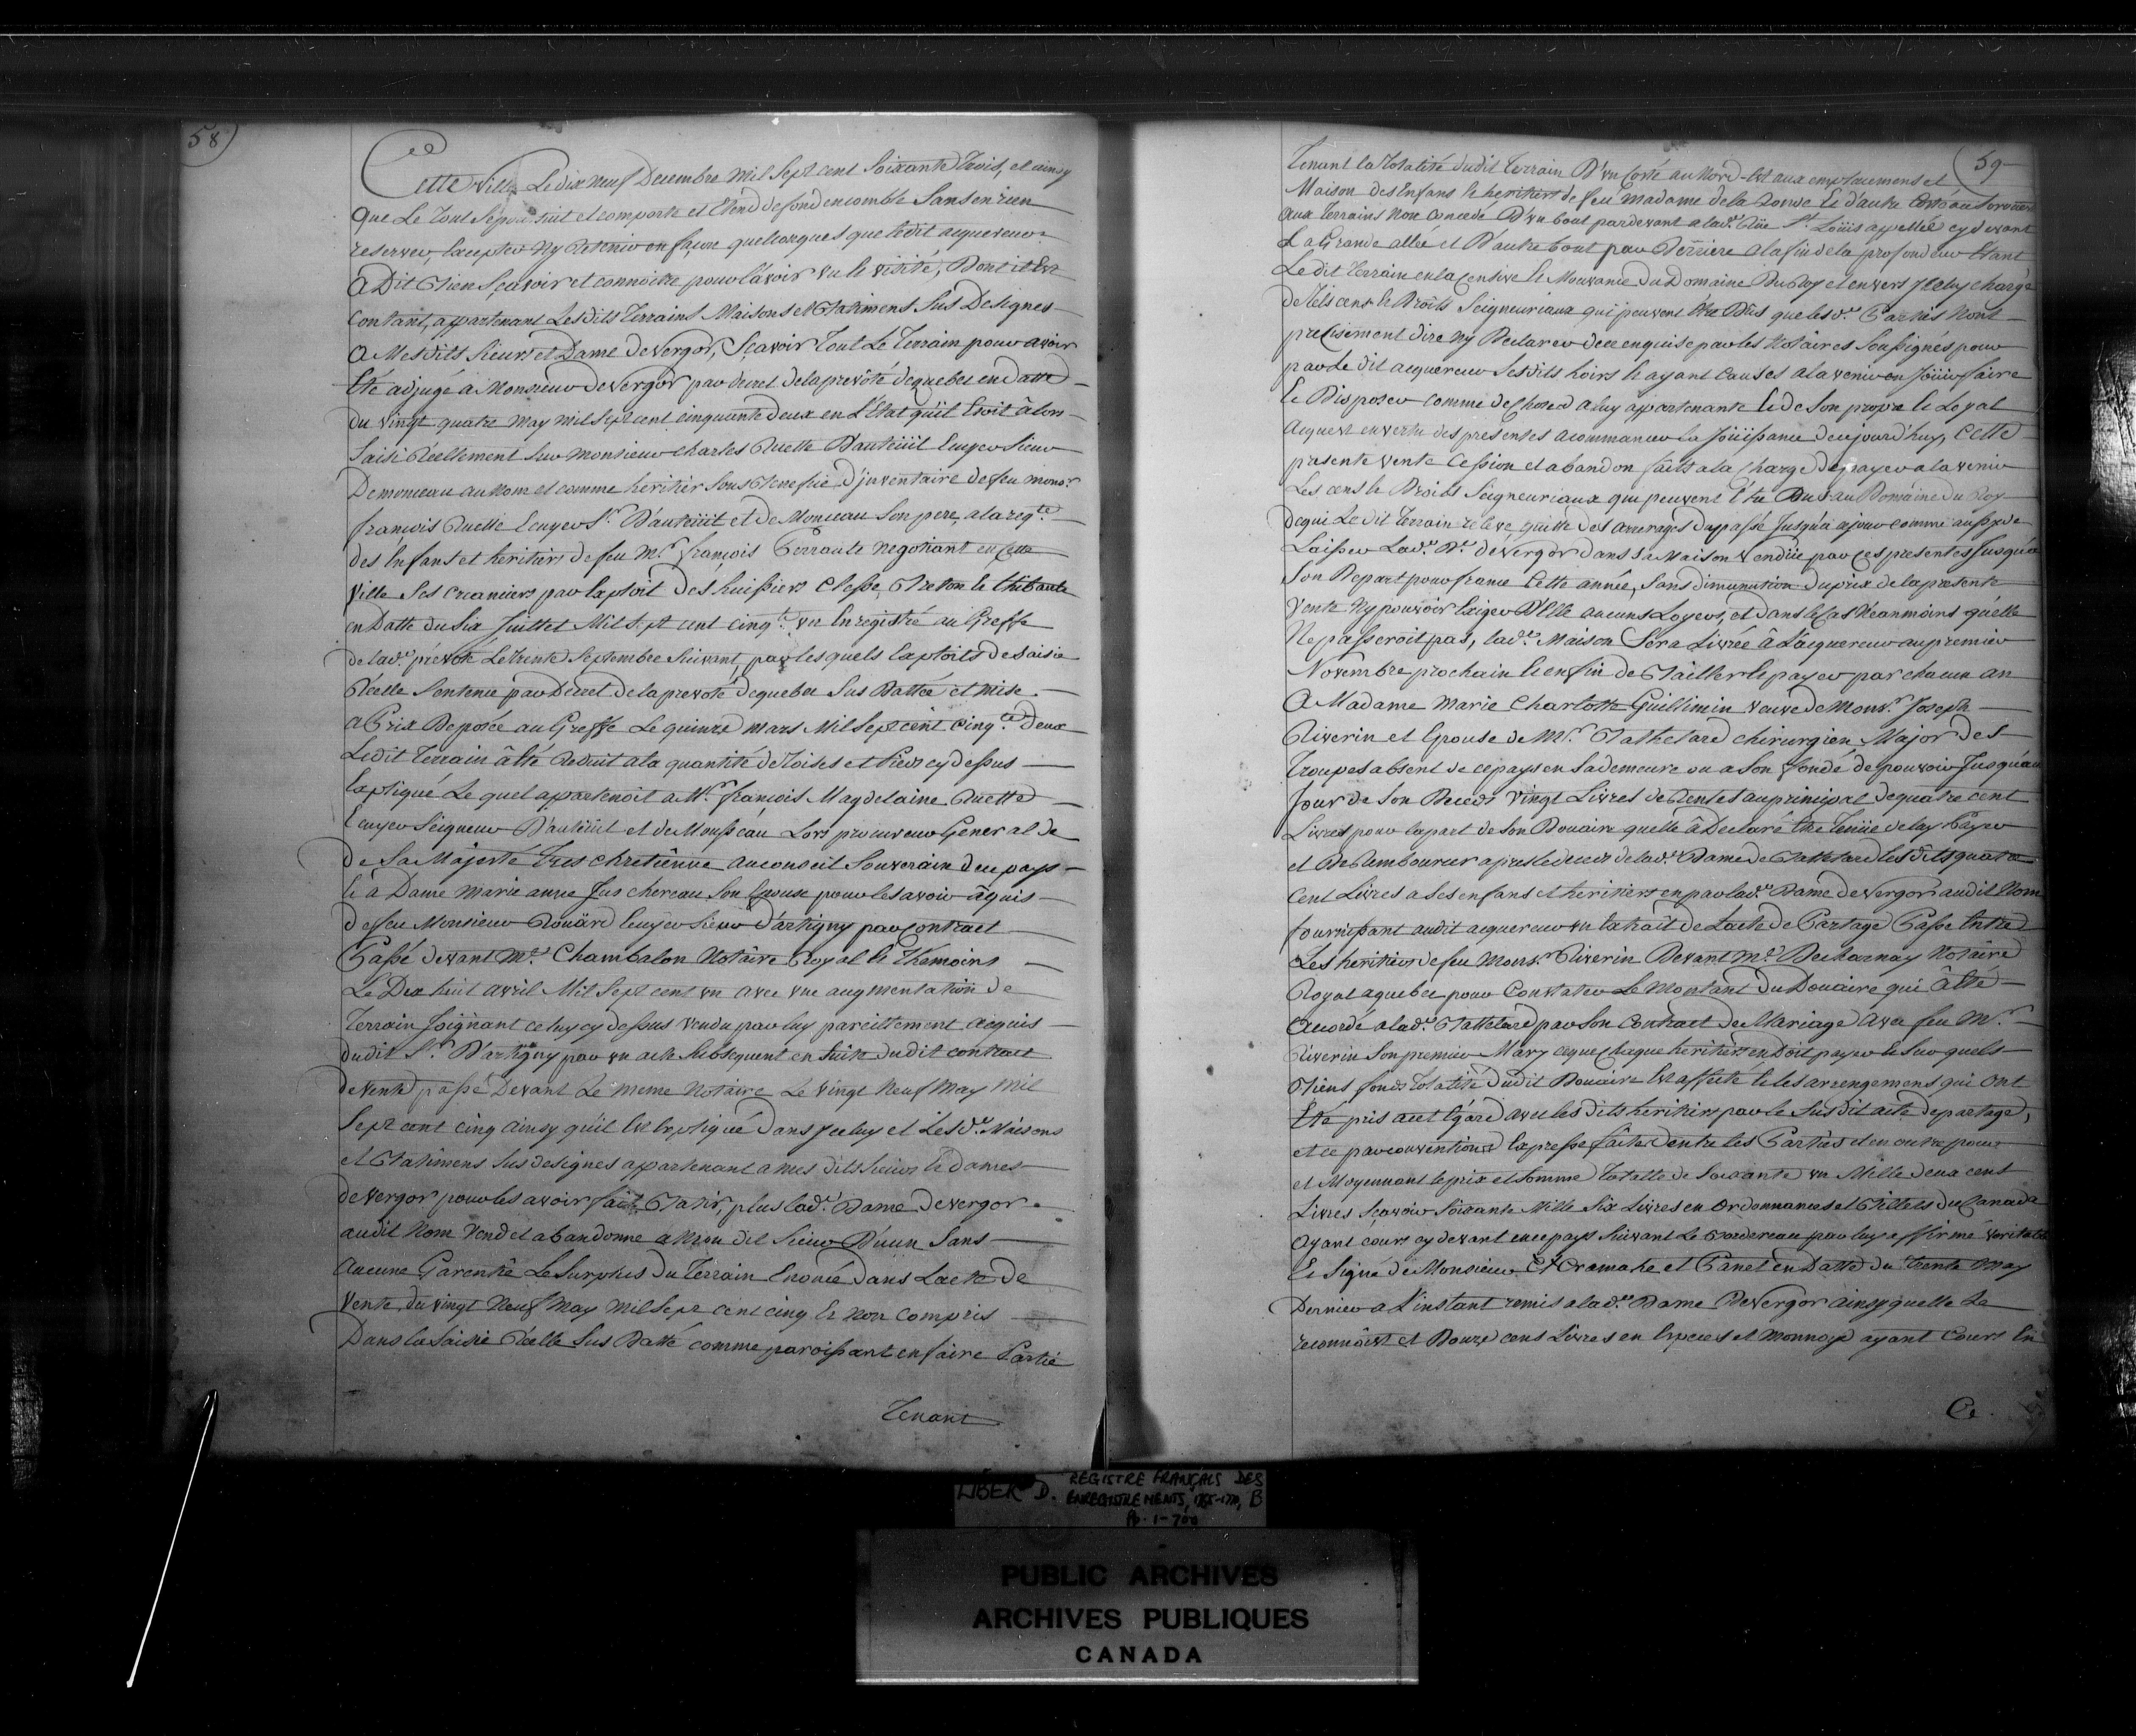 58
Cette ville Le dix neuf Decembre mil Sept cent Soixante Trois, et ainsy
que Le Tout Se poursuit et comporte et Etend de fond en comble Sans en rien
reserver, Excepter Ny Retenir en façon quelconques que ledit acquereur
a Dit Bien Sçavoir et connoitre pour L'avoir vu et visité, Dont il Est
Contant, appartenant Lesdits Terrains Maisons et Batiments Sus Designes
a Mesdits Sieur et Dame de Vergor, Sçavoir Tout Le Terrain pour avoir
Eté adjugé a Monsieur de Vergor par decret de la prevôté de quebec en Datte
du vingt quatre May mil Sept cent cinquante deux en L'Etat qu'il Etoit âlors
Saisi Réellement Sur Monsieur Charles Ruette D'auteüil Ecuyer Sieur
Demonceau au nom et comme heritier Sous Benefice D'inventaire de feu monsr.
françois Ruette Ecuyer Sr. D'auteüil et de Monceau Son pere, a la reqte.
des Enfans et heritiers de feu Mr. françois Perrault Negotiant en Cette
Ville Ses creanciers par Exploit Des huissiers Clesse, Breton et thibault
en Datte du Six Juillet Mil Sept cent cinqte. un Enregistré au Greffe
de lade. prevôté Le Trente Septembre Suivant, par lesquels Exploits de Saisie
Réelle Sentence par Decret de la prevoté de quebec Sus Dattée et mise
a Prix Deposée au Greffe Le quinze mars Mil Sept cent Cinqte. Deux
Ledit Terrain â Eté Reduit a la quantité de Toises et Pieds cy dessus
Expliqué Le quel appartenoit a Mr. françois Magdelaine Ruette
Ecuyer Seigneur D'auteüil et de Monsseau Lors procureur General de
de Sa Majesté Tres chretiênne au conseil Souverain de ce pays
et à Dame Marie anne Juchereau Son Epouse pour les avoir âquis
de feu Monsieur Roüard Ecuyer Sieur D'artigny par Contract
Passé devant Me. Chambalon Notaire Royal et Thémoins
Le Dix huit avril Mil Sept cent un avec une augmentation de
Terrain Joignant celuy cy dessus vendu par luy pareillement acquis
dudit Sr. D'artigny par un acte Subsequent en suite dudit contract
de vente passé Devant Le meme Notaire Le vingt Neuf May Mil
Sept cent cinq ainsy qu'il Est Expliqué Dans Jceluy et Lesde. Maisons
et Batimens Sus designes appartenant a mes dits Sieur et dames
de Vergor pour les avoir fait Batir, plus lade. Dame de Vergor
audit Nom Vend et abandonne a Mon dit Sieur Sans
Aucune Garentie Le Surplus Du Terrain Enoncé dans L'acte de
Vente du vingt Neuf May Mil Sept cent cinq et non Compris
Dans la Saisie Réelle Sus Datté comme paroissant en faire Partie
Tenant
59
Tenant la Totalité dudit Terrain D'un Coté au Nord-Est aux emplacements et
Maison des Enfans et heritiers de feu Madame de la Ronde et d'autre Coté au Sorouest
aux Terrains Non Concedé D'un bout pardevant a lade. Rüe St. Loüis appellée cy devant
La Grande allée et D'autre bout par Derriere a la fin de la profondeur Etant
Ledit Terrain en la Censive et Mouvance du Domaine Du Roy et envers Jceluy chargé
de Tels cens et Droits Seigneuriaux qui peuvent Etre Dûs que lesde. Parties Nont
precisement dire Ny Declarer de ce enquise par les Notaires Soussignés pour
par Le dit acquereur Ses dits hoirs et ayant Causes a la venir en Joüir faire
et Disposer Comme de Chosed a luy appartenante et de Son propre et Loyal
Acquest en vertu des presentes a commancer la Joüissance de cejourd'huy, Cette
presente Vente Cession et abandon faits a la Charge de payer a la venir
Les cens et Droits Seigneuriaux qui peuvent Etre Dus au Domaine du Roy
de qui Le dit Terrain relève, quitte des arrerages du passé Jusqu'a ce jour comme aussy de
Laisser Lade. De. de Vergor dans sa Maison Vendüe par ces presentes Jusqu'a
Son Depart pour france Cette année, Sans dimunution du prix de la presente
Vente Ny pouvoir Exiger D'Elle aucuns Loyers, et dans le Cas Neanmoins qu'elle
Ne passeroit pas, lade. Maison Sera Livrée â L'acquereur au premier
Novembre prochain et enfin de Bailler et payer par chacun an
A Madame Marie Charlotte Guillimin veuve de Monsr. Joseph
Riverin et Epouse de Mr. Bathelard chirurgien Major des
Troupes absent de ce pays en Sa demeure ou a Son fondé de pouvoir Jusqu'au
Jour de Son Deceds Vingt Livres de Rentes au principal de quatre cent
Livres pour la part de Son Douaire quelle â Declaré Etre Tenüe de luy Payer
et De Rembourcer apres le deceds de lade. Dame de Bathelard les dits quatre
Cent Livres a Ses enfans et heritiers en par lade. Dame de Vergor audit Nom
fournissant audit acquereur un Extrait de L'acte de Partage Passé Entre
Les heritiers de feu Monsr. Riverin Devant Me. Decharnay Notaire
Royal a quebec pour Constater Le Montant Du Douaire qui â Eté
Accordé a lade. Battelard par Son Contract de Mariage avec feu Mr.
Riverin Son premier Mary ce que Chaque heritiers en Doit payer et Sur quels
Biens fonds Totalité dudit Douaire Est affecté et les arrengemens qui ont
Eté pris a cet Egard avec les dits heritiers par le Susdit acte de partage,
et ce par convention Expresse faites d'entre les Parties et en outre pour
et Moyennant le prix et Somme Totalle de Soixante un Mille deux cens
Livres Sçavoir Soixante Mille Six Livres en ordonnances et Billets du Canada
Ayant cours cy devant en ce pays Suivant Le bordereau par luy affirmé veritable
Et Signé de Monsieur Cramahé et Panet en Datte du Trente May
Dernier a L'instant remis a lade. Dame De Vergor ainsy quelle Le
reconnoist et Douze cens Livres en Especes et Monnoye ayant Cours En
Ce
LIBER D. REGISTRE FRANÇAIS DES
ENREGISTREMENTS, B
Pp. 1-700
PUBLIC ARCHIVES
ARCHIVES PUBLIQUES
CANADA